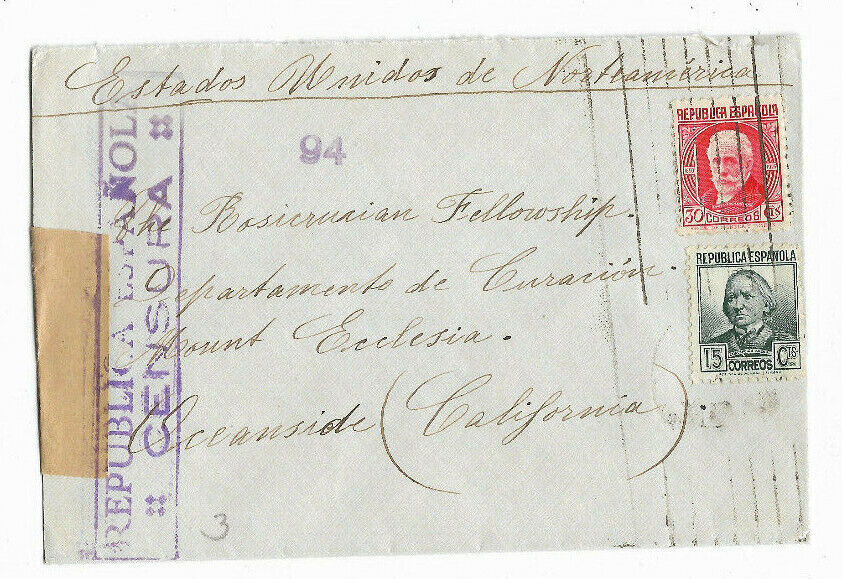 Estados Unidos de Norteamérica
94
REPUBLICA ESPAÑOLA
30 CORREOS CTS
The Rosicrucian Fellowship.
Departamento de Curación.
Mount Ecclesia.
Oceanside (California)
REPUBLICA ESPAÑOLA
15 CTS
CORREOS
REPUBLICA ESPAÑOLA
CENSURA
3